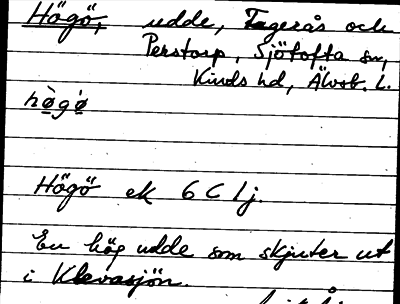 Högö, udde, Tagerås och
Perstorp, Sjötofta sn,
Kinds hd, Älvsb. L.
hø̀gø̀
Högö ek 6 C 1 j.
En hög udde som skjuter ut
i Klevasjön.